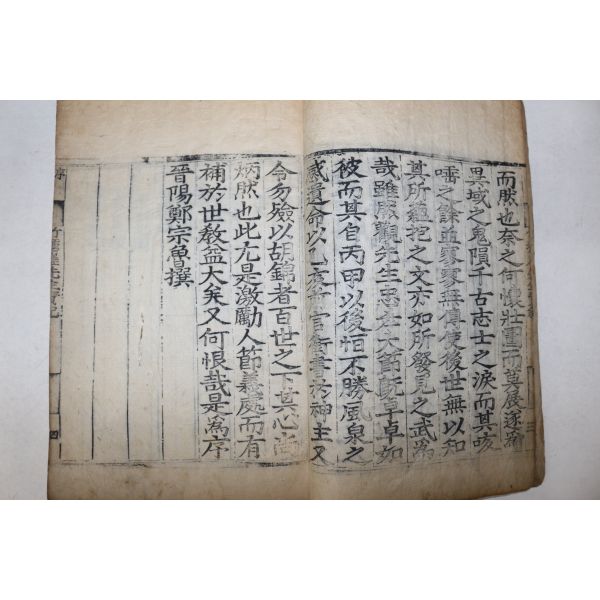 而然也奈之何懷壯圖而莫展逐爲
異域之鬼隕千古志士之淚而其咳
唾之餘並寥寥無傳使後世無以知
其所蘊抱之文亦如所發見之武爲
哉雖然觀先生志在大節旣卓卓如
彼而其自丙甲以後恒不勝風泉之
感遺命以 官銜書於神主又
令勿斂以胡錦者百世之下其心尙
炳然也此尤是激勵人節義處而有
補於世敎益大矣又何恨哉是爲序
晉陽鄭宗魯撰
序
四
三